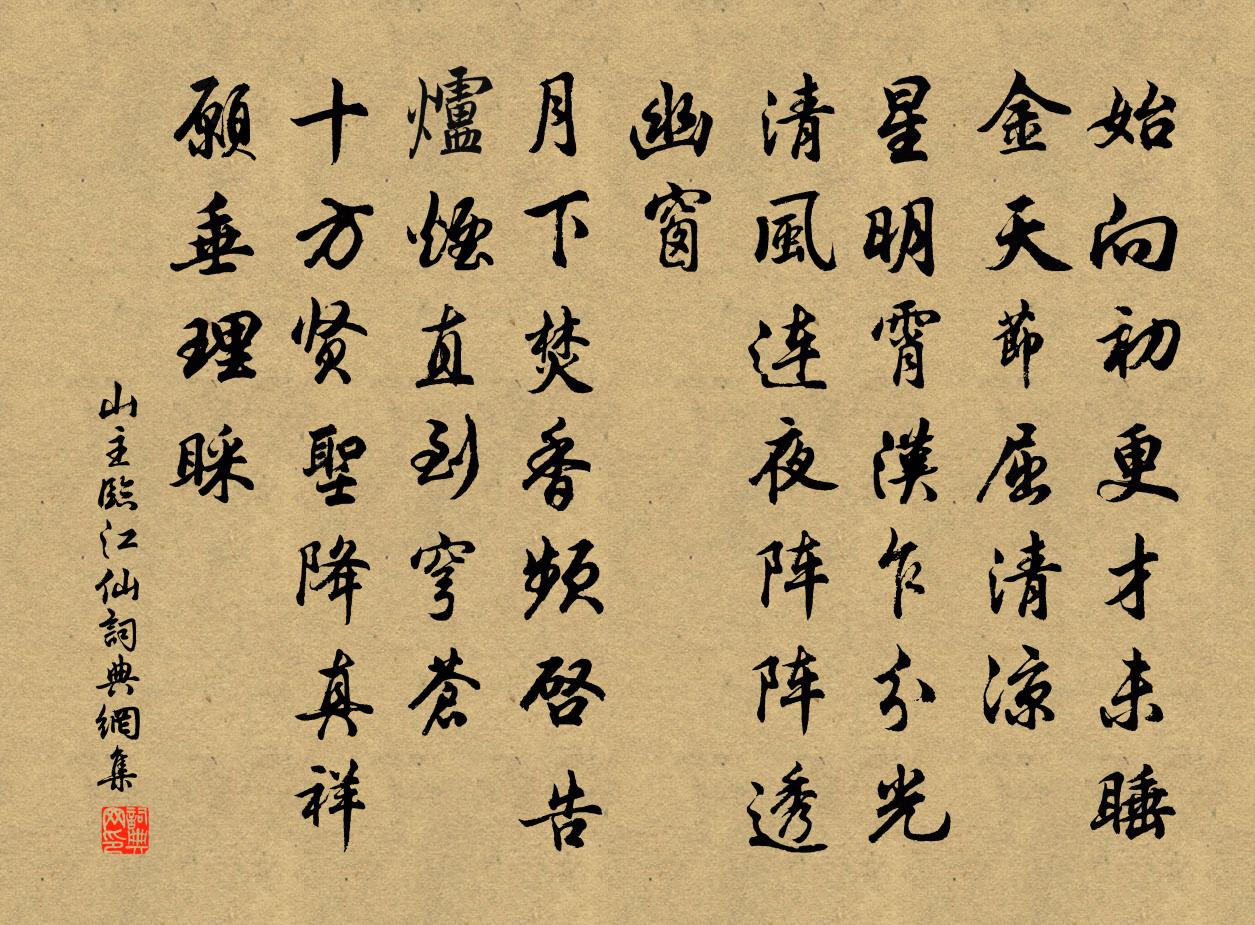 始向初更才未睡
金天節屈清凉
星明霄漢乍分光
清風连夜阵阵透
幽窗
月下焚香頻啓告
爐煙直到穹蒼
十方贤聖降真祥
願垂理睬
山主臨江仙詞典網集
詞典网印